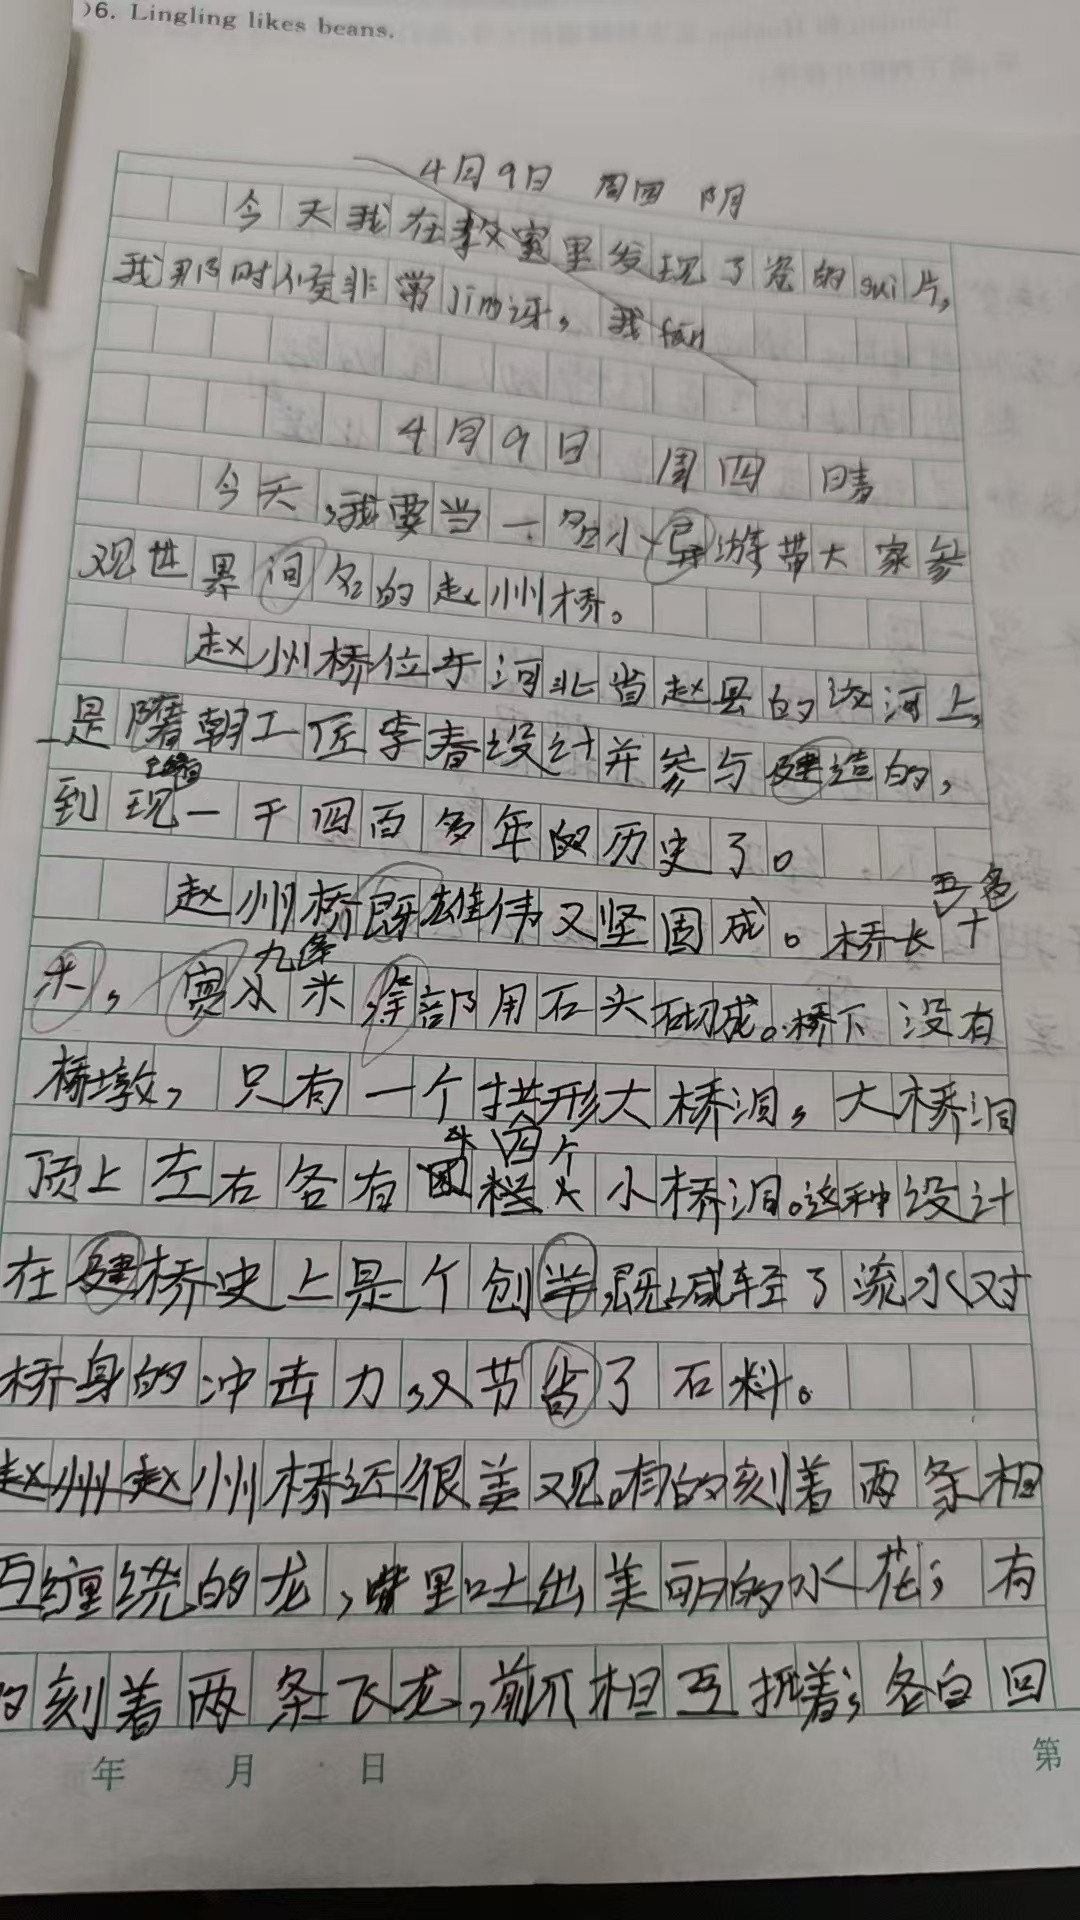 )6. Lingling likes beans.
4月9日 周四 阴
今天我在教室里发现了瓷的sui片,
我那时候非常jing讶,我fan
4月9日 周四 晴
今天,我要当一名小导游带大家参
观世界闻名的赵州桥。
赵州桥位于河北省赵县的洨河上,
是隋朝工匠李春设计并参与建造的,
到现一千四百多年的历史了。
赵州桥既雄伟又坚固成。桥长五十多
米,宽九米 部用石头砌成。桥下没有
桥墩,只有一个拱形大桥洞,大桥洞
顶上左右各有四个小桥洞。这种设计
在建桥史上是个创举,既减轻了流水对
桥身的冲击力,又节省了石料。
赵州赵州桥还很美观。有的刻着两条相
互缠绕的龙,嘴里吐出美丽的水花;有
的刻着两条飞龙,前爪相互抵着,各自回
年 月 日 第